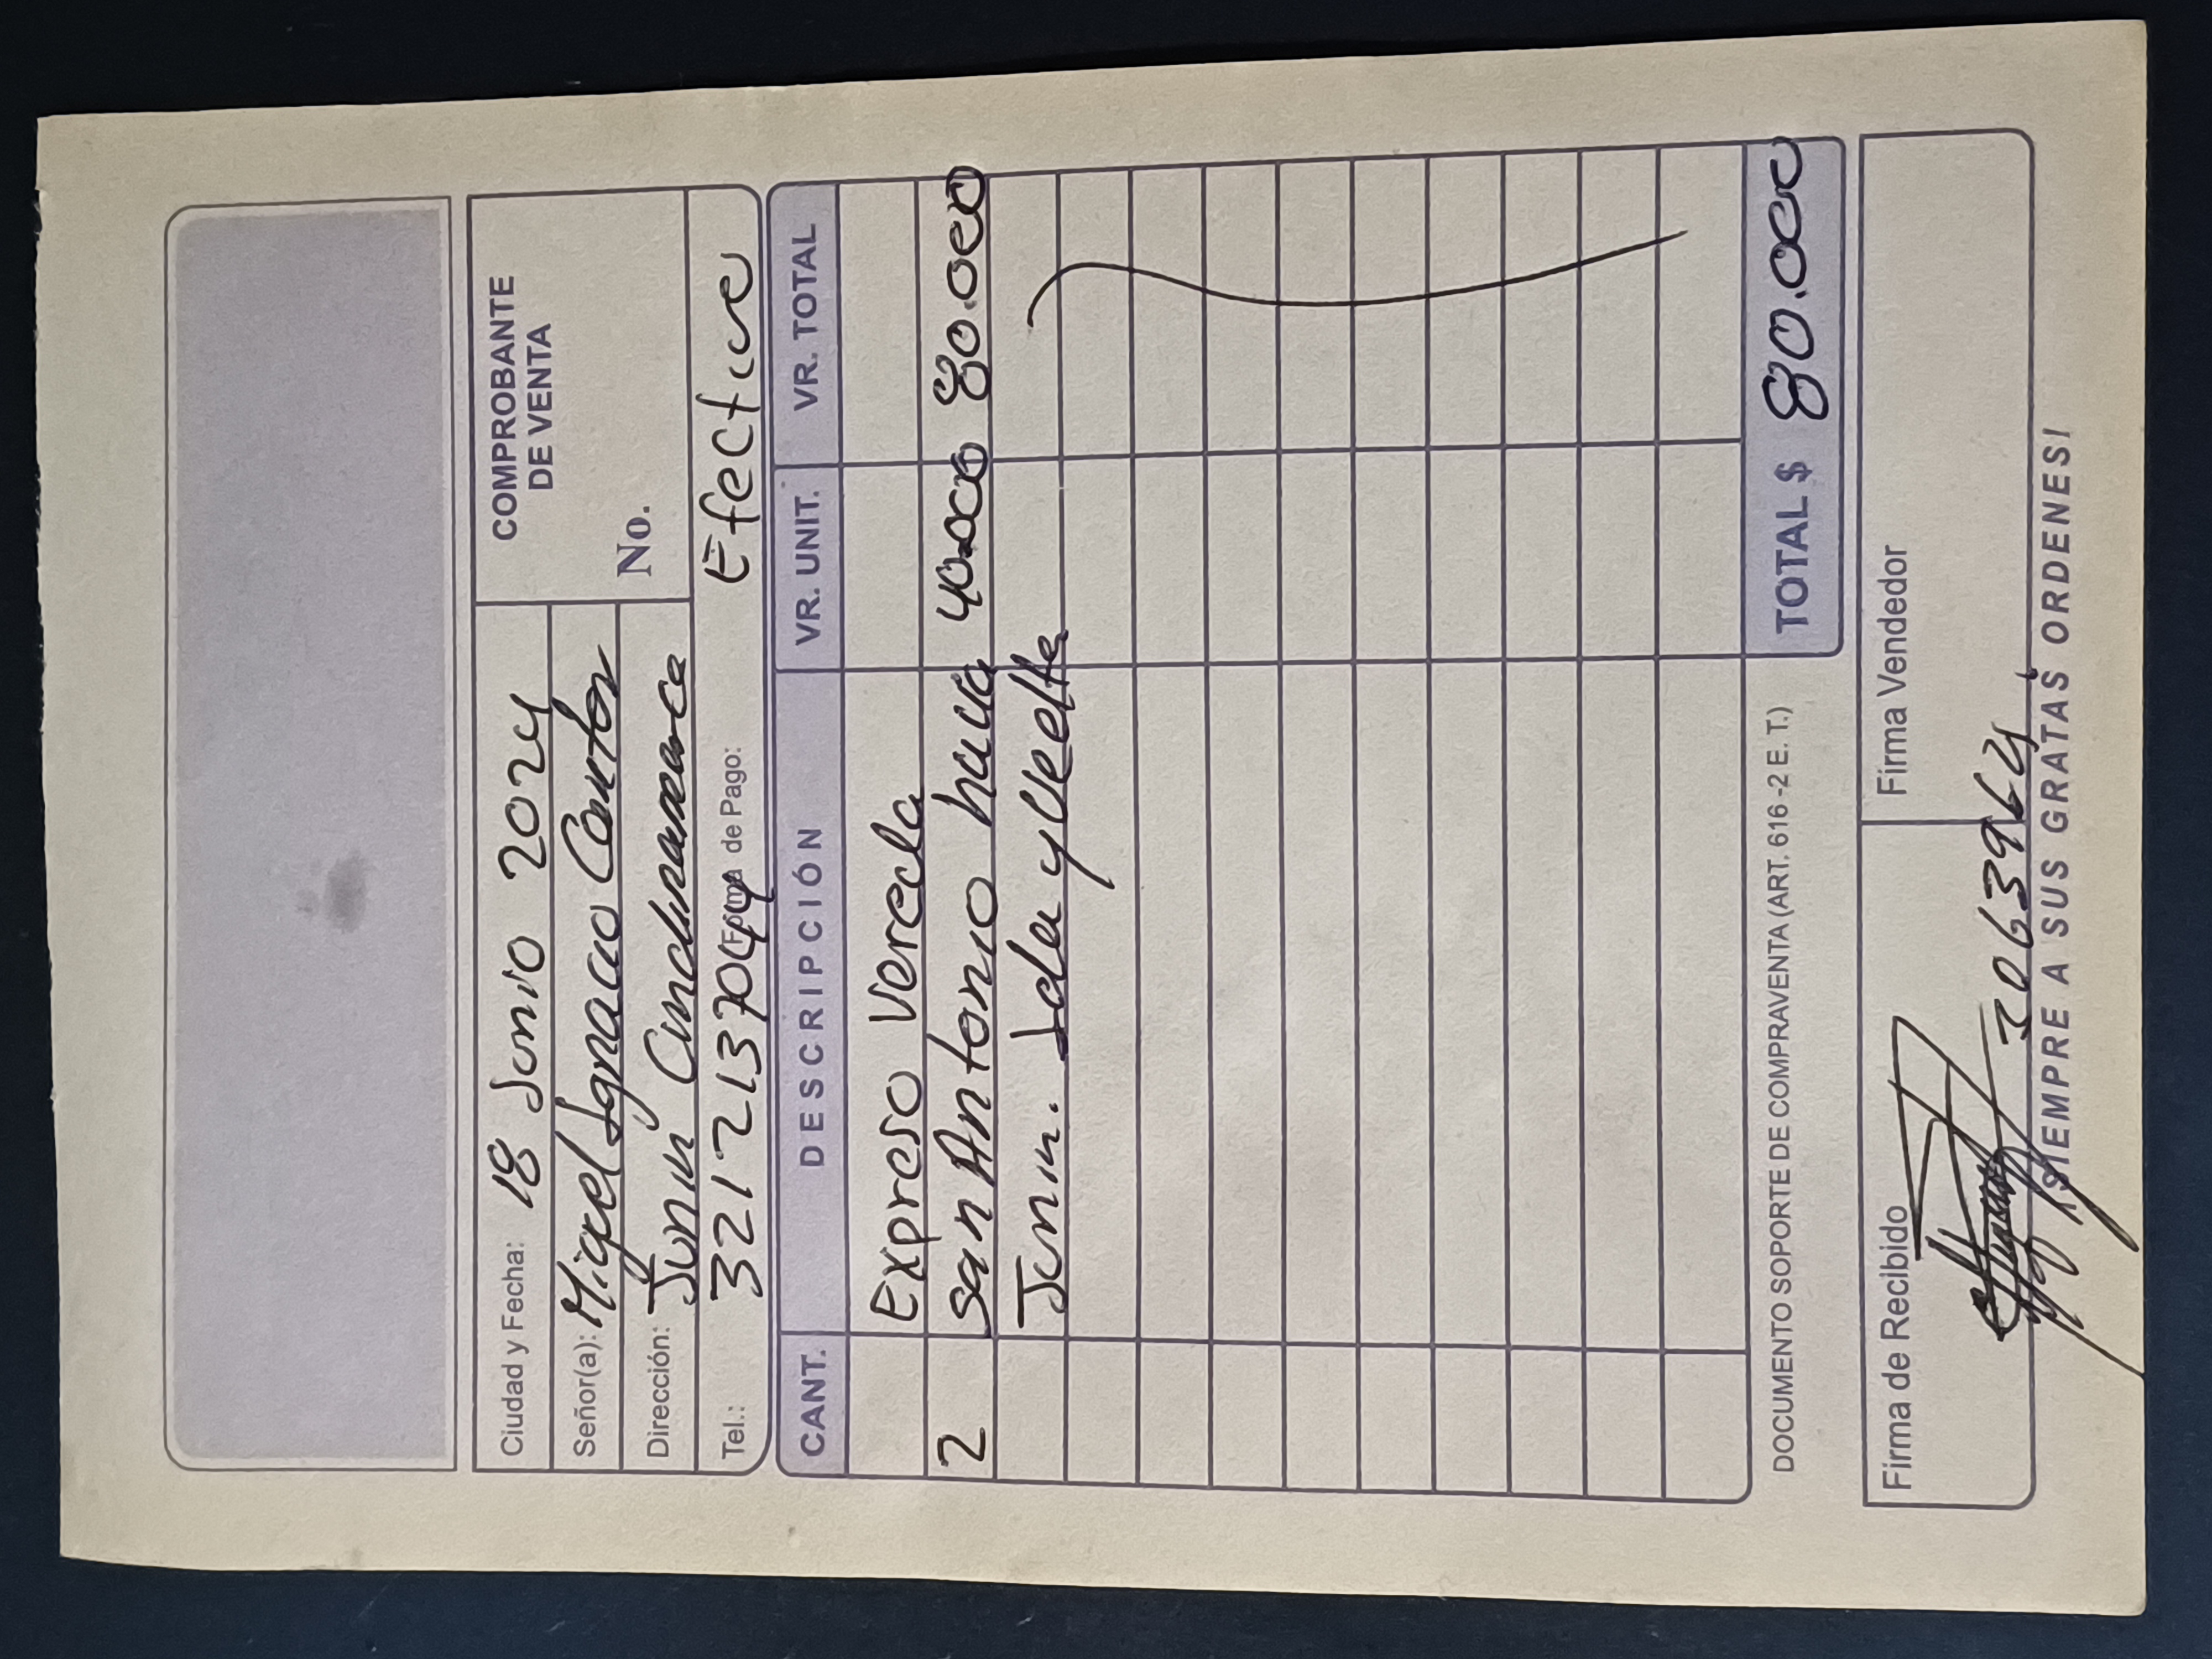 COMPROBANTE
DE VENTA
No.
Ciudad y Fecha: 18 Junio 2024
Señor(a): Miguel Ignacio Cantor
Dirección: Junin Cundinamarca
Tel.: 321 2137044 Forma de Pago: Efectivo
CANT. DESCRIPCIÓN VR. UNIT. VR. TOTAL
Expreso Vereda
2 San Antonio hacia 40.000 80.000
Junin. Ida y Vuelta
DOCUMENTO SOPORTE DE COMPRAVENTA (ART. 616 -2 E. T.) TOTAL $ 80.000
Firma de Recibido Firma Vendedor
3063964
SIEMPRE A SUS GRATAS ORDENES!